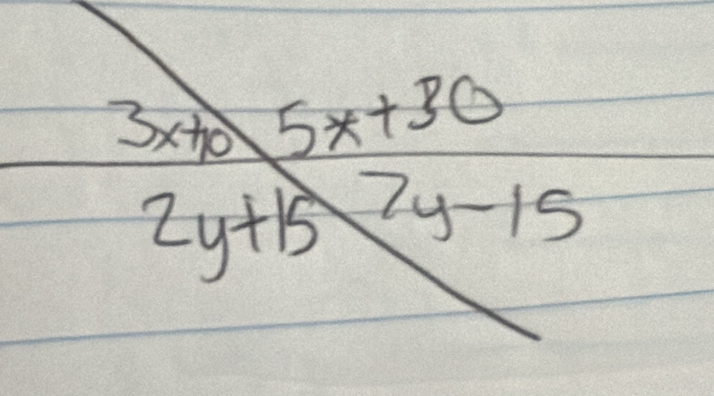 3x+10 5x+30
2y+15 7y-15